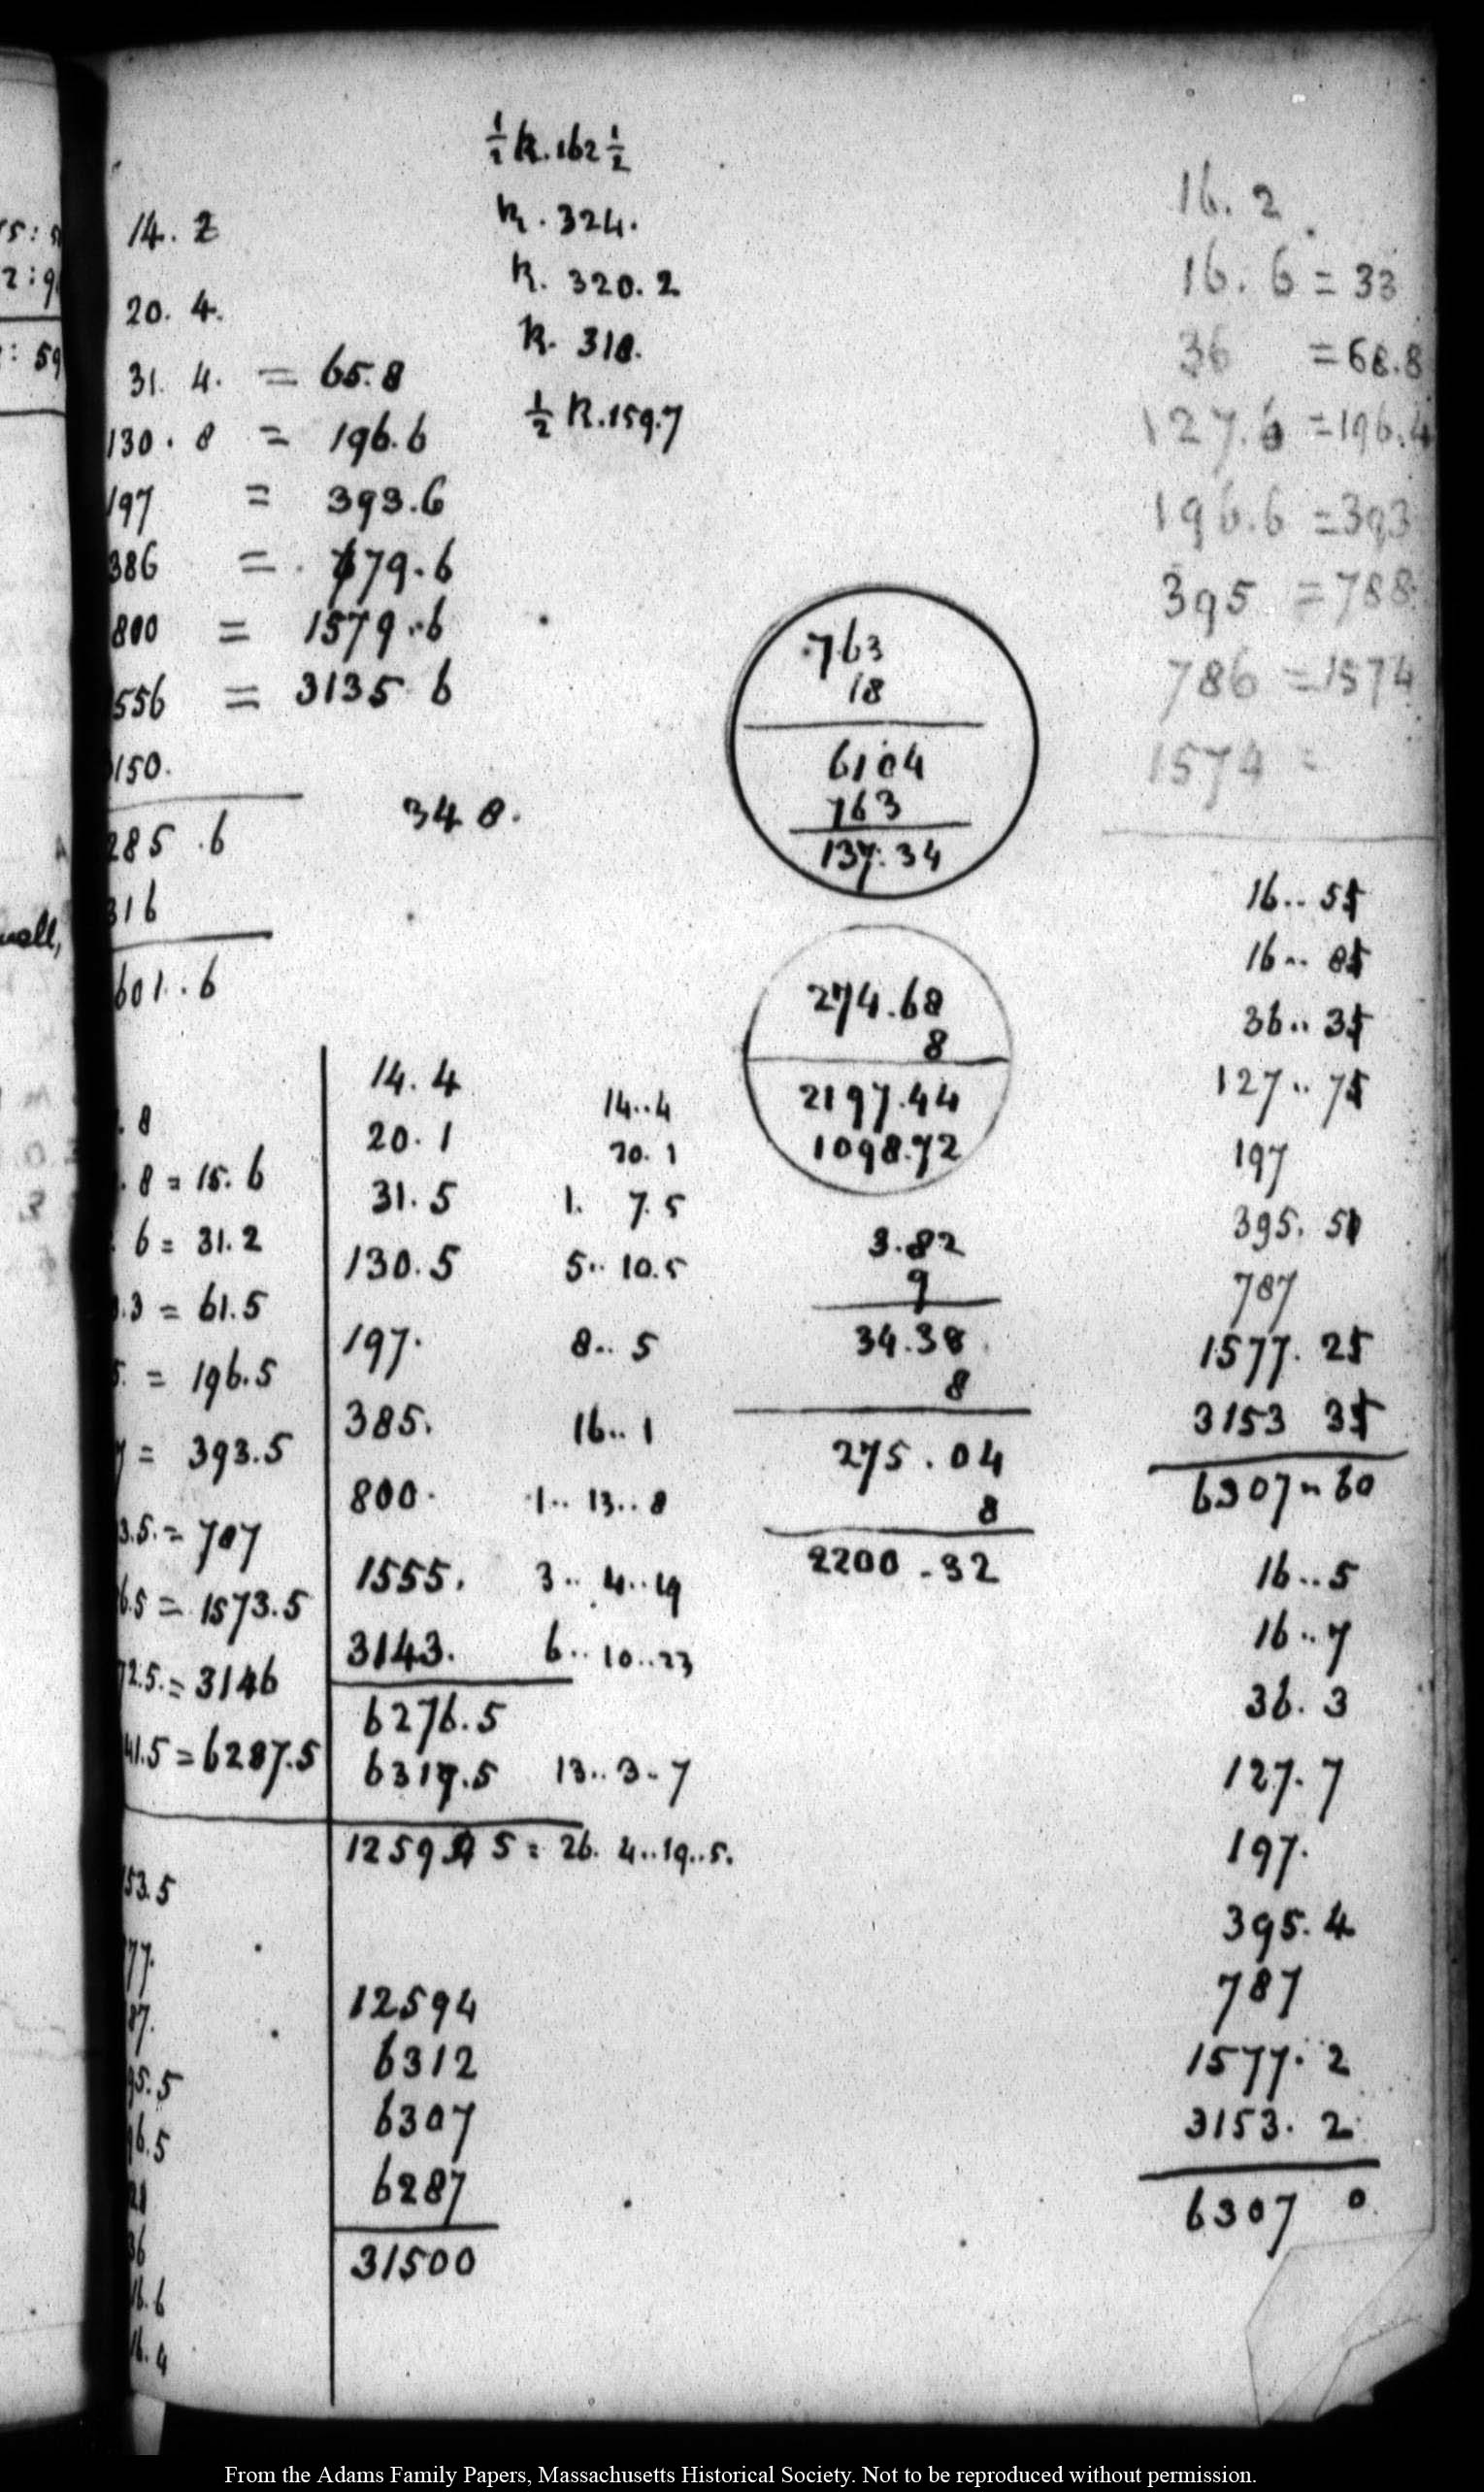 ½ k. 162 ½
k. 324.
k. 320. 2
k. 318.
½ k. 159.7
14. 2
20. 4.
31. 4. = 65.8
130. 8 = 196.6
197 = 393.6
386 = 779.6
800 = 1579..6
556 = 3135 6
150.
285 .6
316
601..6
348.
. 8
. 8 = 15. 6
6 = 31. 2
.3 = 61.5
5. = 196.5
7 = 393.5
3.5. = 787
6.5 = 1573.5
72.5. = 3146
41.5 = 6287.5
53.5
77.
87.
95.5
96.5
36
16.6
16.4
14. 4 14..4
20. 1 20. 1
31. 5 1. 7. 5
130. 5 5.. 10.5
197. 8.. 5
385. 16.. 1
800. 1.. 13.. 8
1555. 3.. 4..19
3143. 6.. 10..23
6276.5
6317.5 13.. 3.. 7
12594 5 = 26. 4..19..5.
12594
6312
6307
6287
31500
.763
18
6104
763
137.34
274.68
8
2197.44
1098.72
3.82
9
34.38
8
275.04
8
2200.32
16. 2
16. 6 = 33
36 = 68.8
127.6 = 196.4
196.6 = 393
395 = 788
786 = 1574
1574 =
16.. 55
16.. 85
36.. 35
127.. 75
197
395. 50
787
1577. 25
3153 35
6307.. 60
16.. 5
16.. 7
36. 3
127. 7
197.
395. 4
787
1577. 2
3153. 2
6307 0
15:5
2:9
: 59
wall,
From the Adams Family Papers, Massachusetts Historical Society. Not to be reproduced without permission.